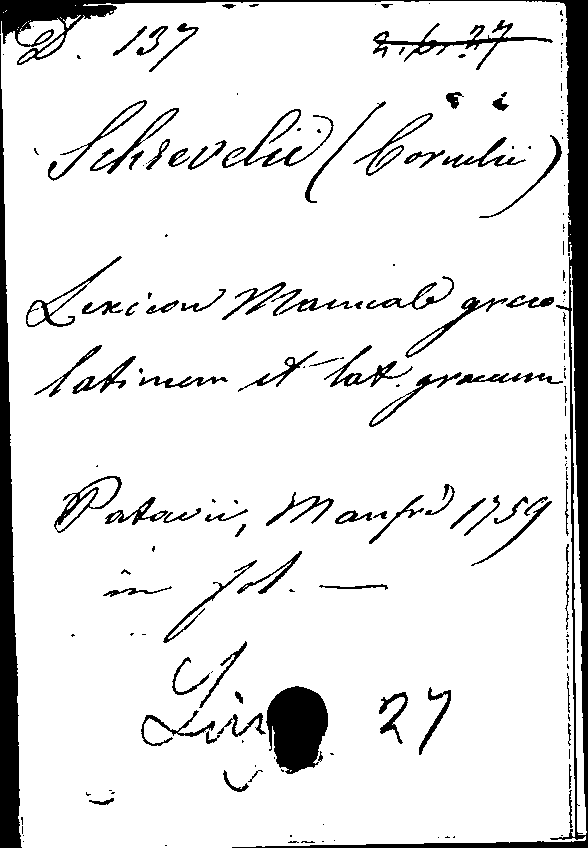 D. 137
Schrevelii (Cornelii)
Lexicon Manuale græco-
latinum et lat. græcum
Patavii, Manfrè 1759
in fol. —
27